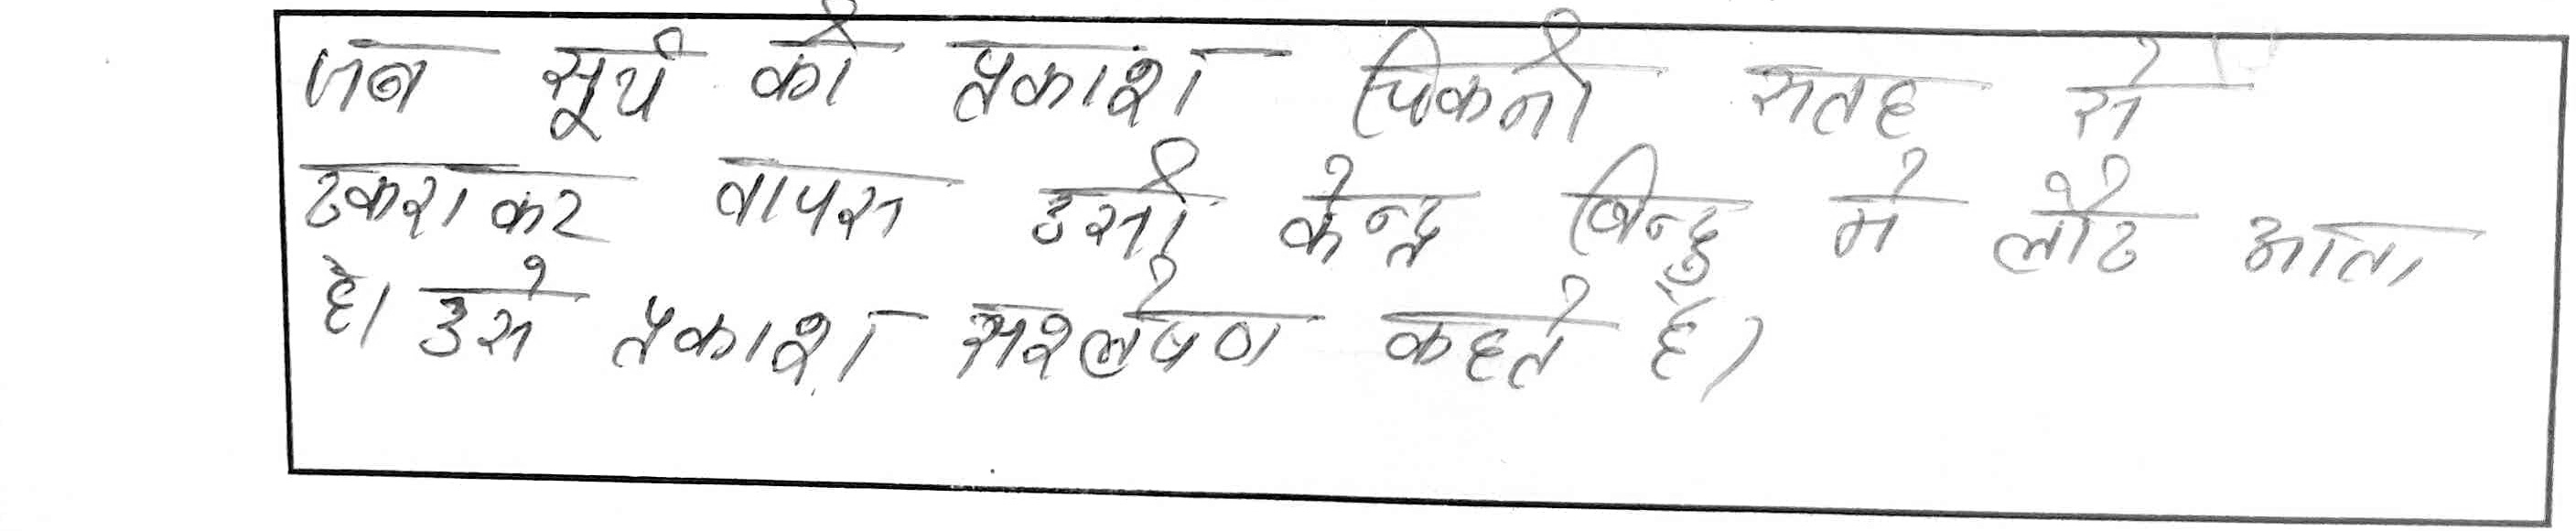 जब सूर्य की प्रकाश चिकनी सतह से
टकराकर वापस उसी केन्द्र बिन्दु मे लौट आता
है। उसे प्रकाश संश्लेषण कहते है।